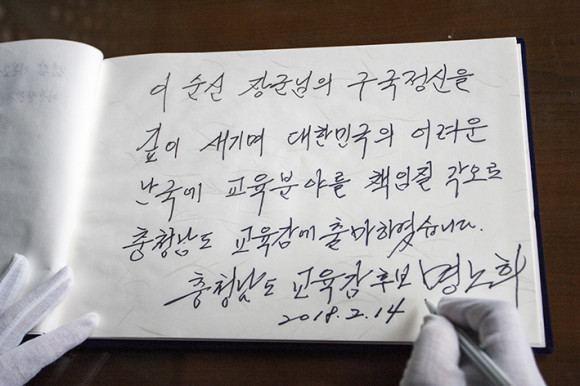 이 순신 장군님의 구국정신을
깊이 새기며 대한민국의 어려운
난국에 교육분야를 책임질 각오로
충청남도 교육감에 출마하였습니다.
충청남도 교육감후보 명노희
2018.2.14